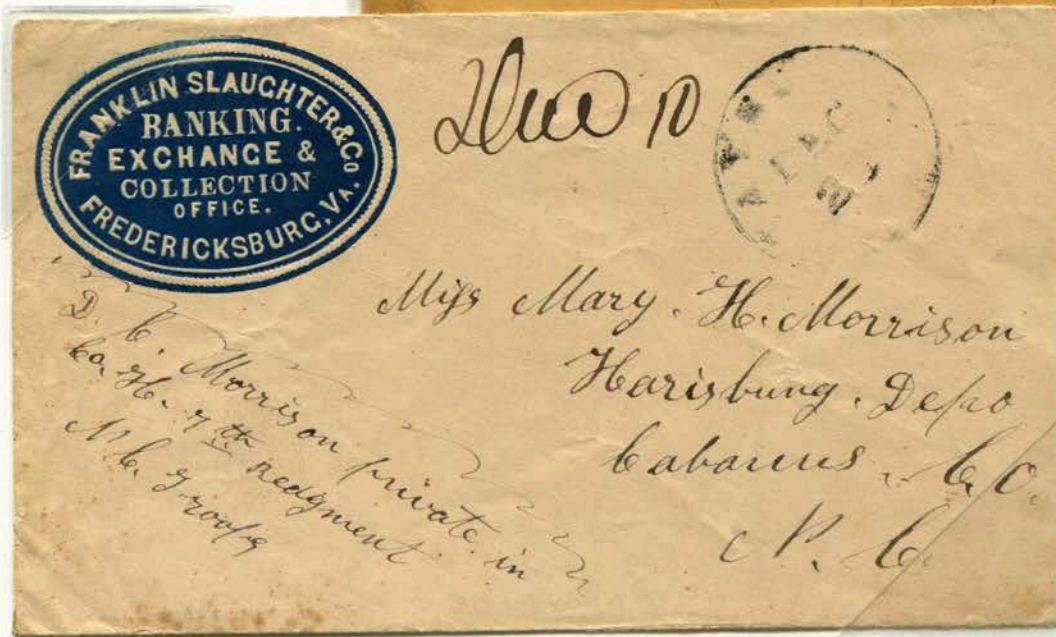 FRANKLIN SLAUGHTER & Co
BANKING.
EXCHANGE &
COLLECTION
OFFICE.
FREDERICKSBURG, VA.
Due 10
DEC
Miss Mary. H. Morrison
Harisburg. Depo
Cabarrus. C. O.
N. C.
D. C. Morrison private in
Co. H. 7th Redgment
N. C. Troops